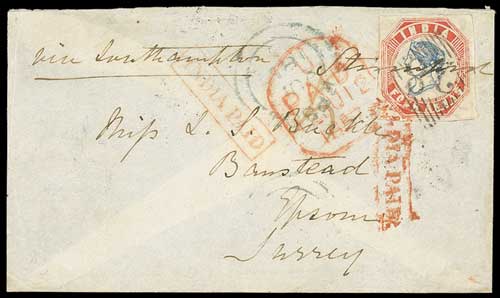 via Southampton Steamer
INDIA
FOUR ANNAS
INDIA PAID
PAID
Miss L. S. Buckle
Banstead
Epsom
Surrey
INDIA PAID